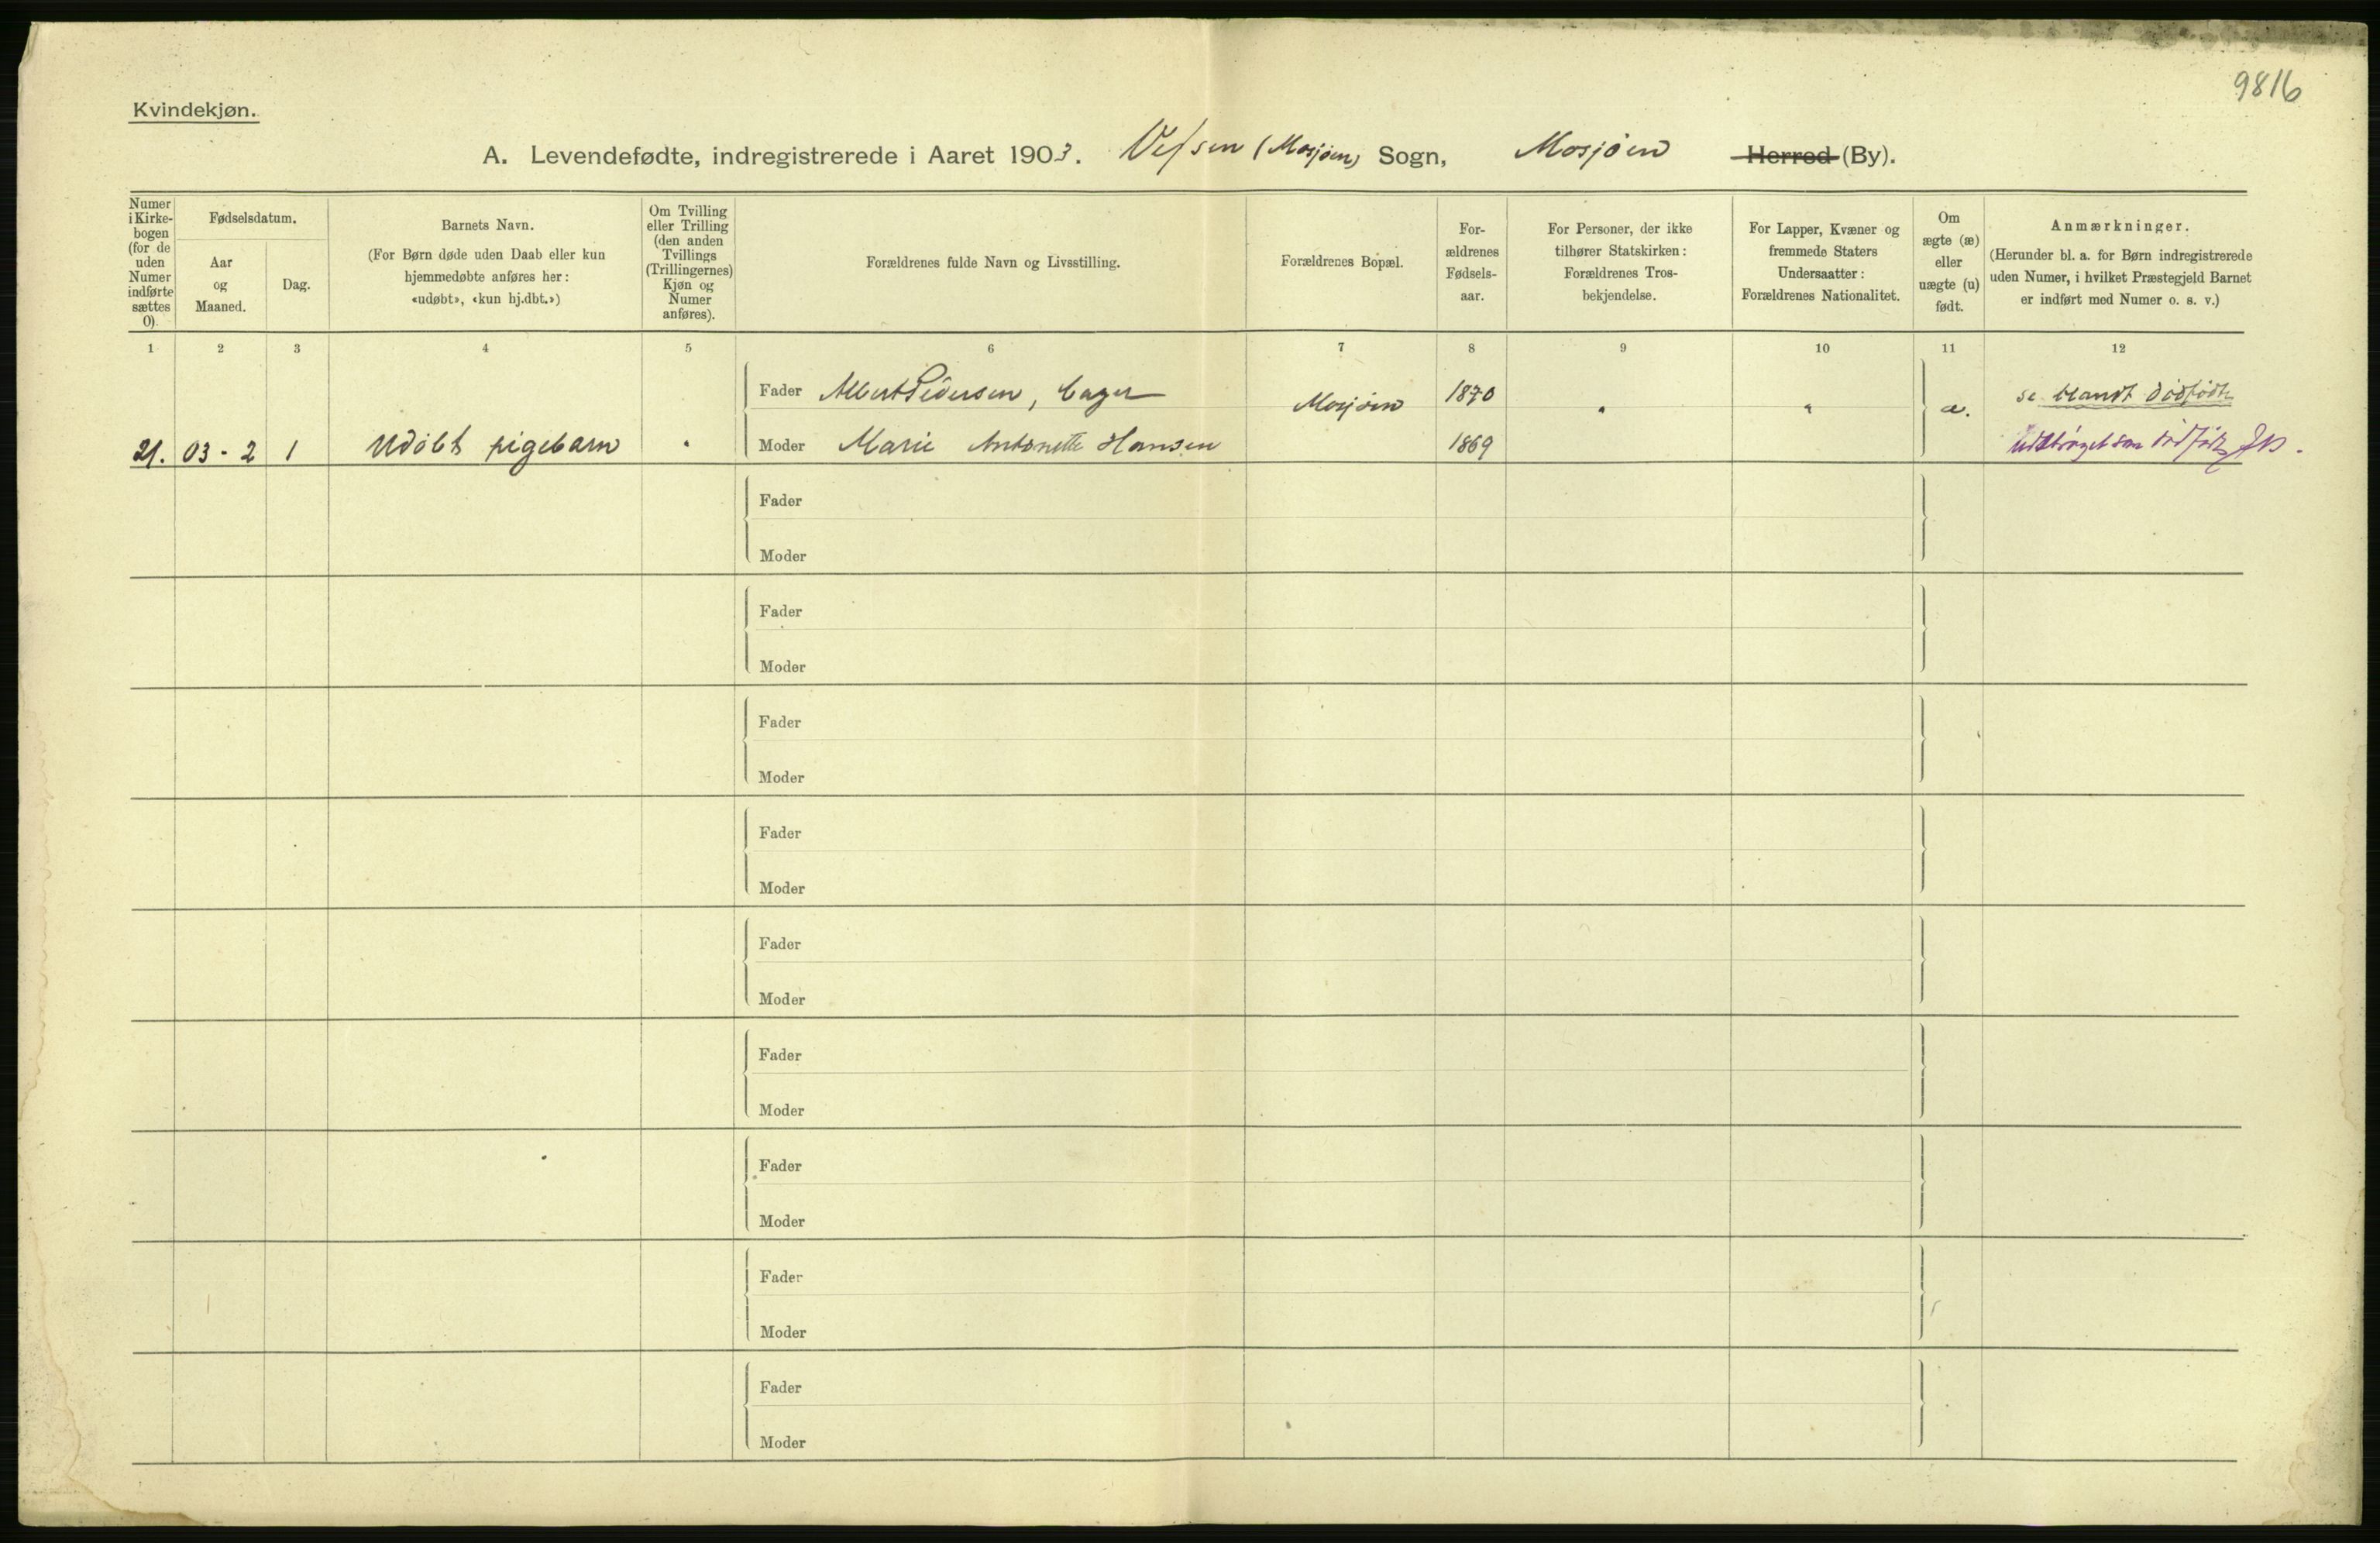 9816
Kvindekjøn.
A. Levendefødte, indregistrerede i Aaret 1903. Vefsen (Mosjøen) Sogn, Mosjøen Herred (By).
Numer
i Kirke-
bogen
(for de
uden
Numer
indførte
sættes
0).
Fødselsdatum.
Aar
og
Maaned.
Dag.
Barnets Navn.
(For Børn døde uden Daab eller kun
hjemmedøbte anføres her:
«udøbt», «kun hj.dbt.»)
Om Tvilling
eller Trilling
(den anden
Tvillings
(Trillingernes)
Kjøn og
Numer
anføres).
Forældrenes fulde Navn og Livsstilling.
Forældrenes Bopæl.
For-
ældrenes
Fødsels-
aar.
For Personer, der ikke
tilhører Statskirken:
Forældrenes Tros-
bekjendelse.
For Lapper, Kvæner og
fremmede Staters
Undersaatter:
Forældrenes Nationalitet.
Om
ægte (æ)
eller
uægte (u)
født.
Anmærkninger.
(Herunder bl. a. for Børn indregistrerede
uden Numer, i hvilket Præstegjeld Barnet
er indført med Numer o. s. v.)
1 2 3 4 5 6 7 8 9 10 11 12
Fader Albert Pedersen, bager Mosjøen 1870 " " æ. se blandt dødfødte
21. 03-2 1 Udøbt pigebarn " Moder Marie Antonette Hansen 1869 som dødfødt
Fader
Moder
Fader
Moder
Fader
Moder
Fader
Moder
Fader
Moder
Fader
Moder
Fader
Moder
Fader
Moder
Fader
Moder